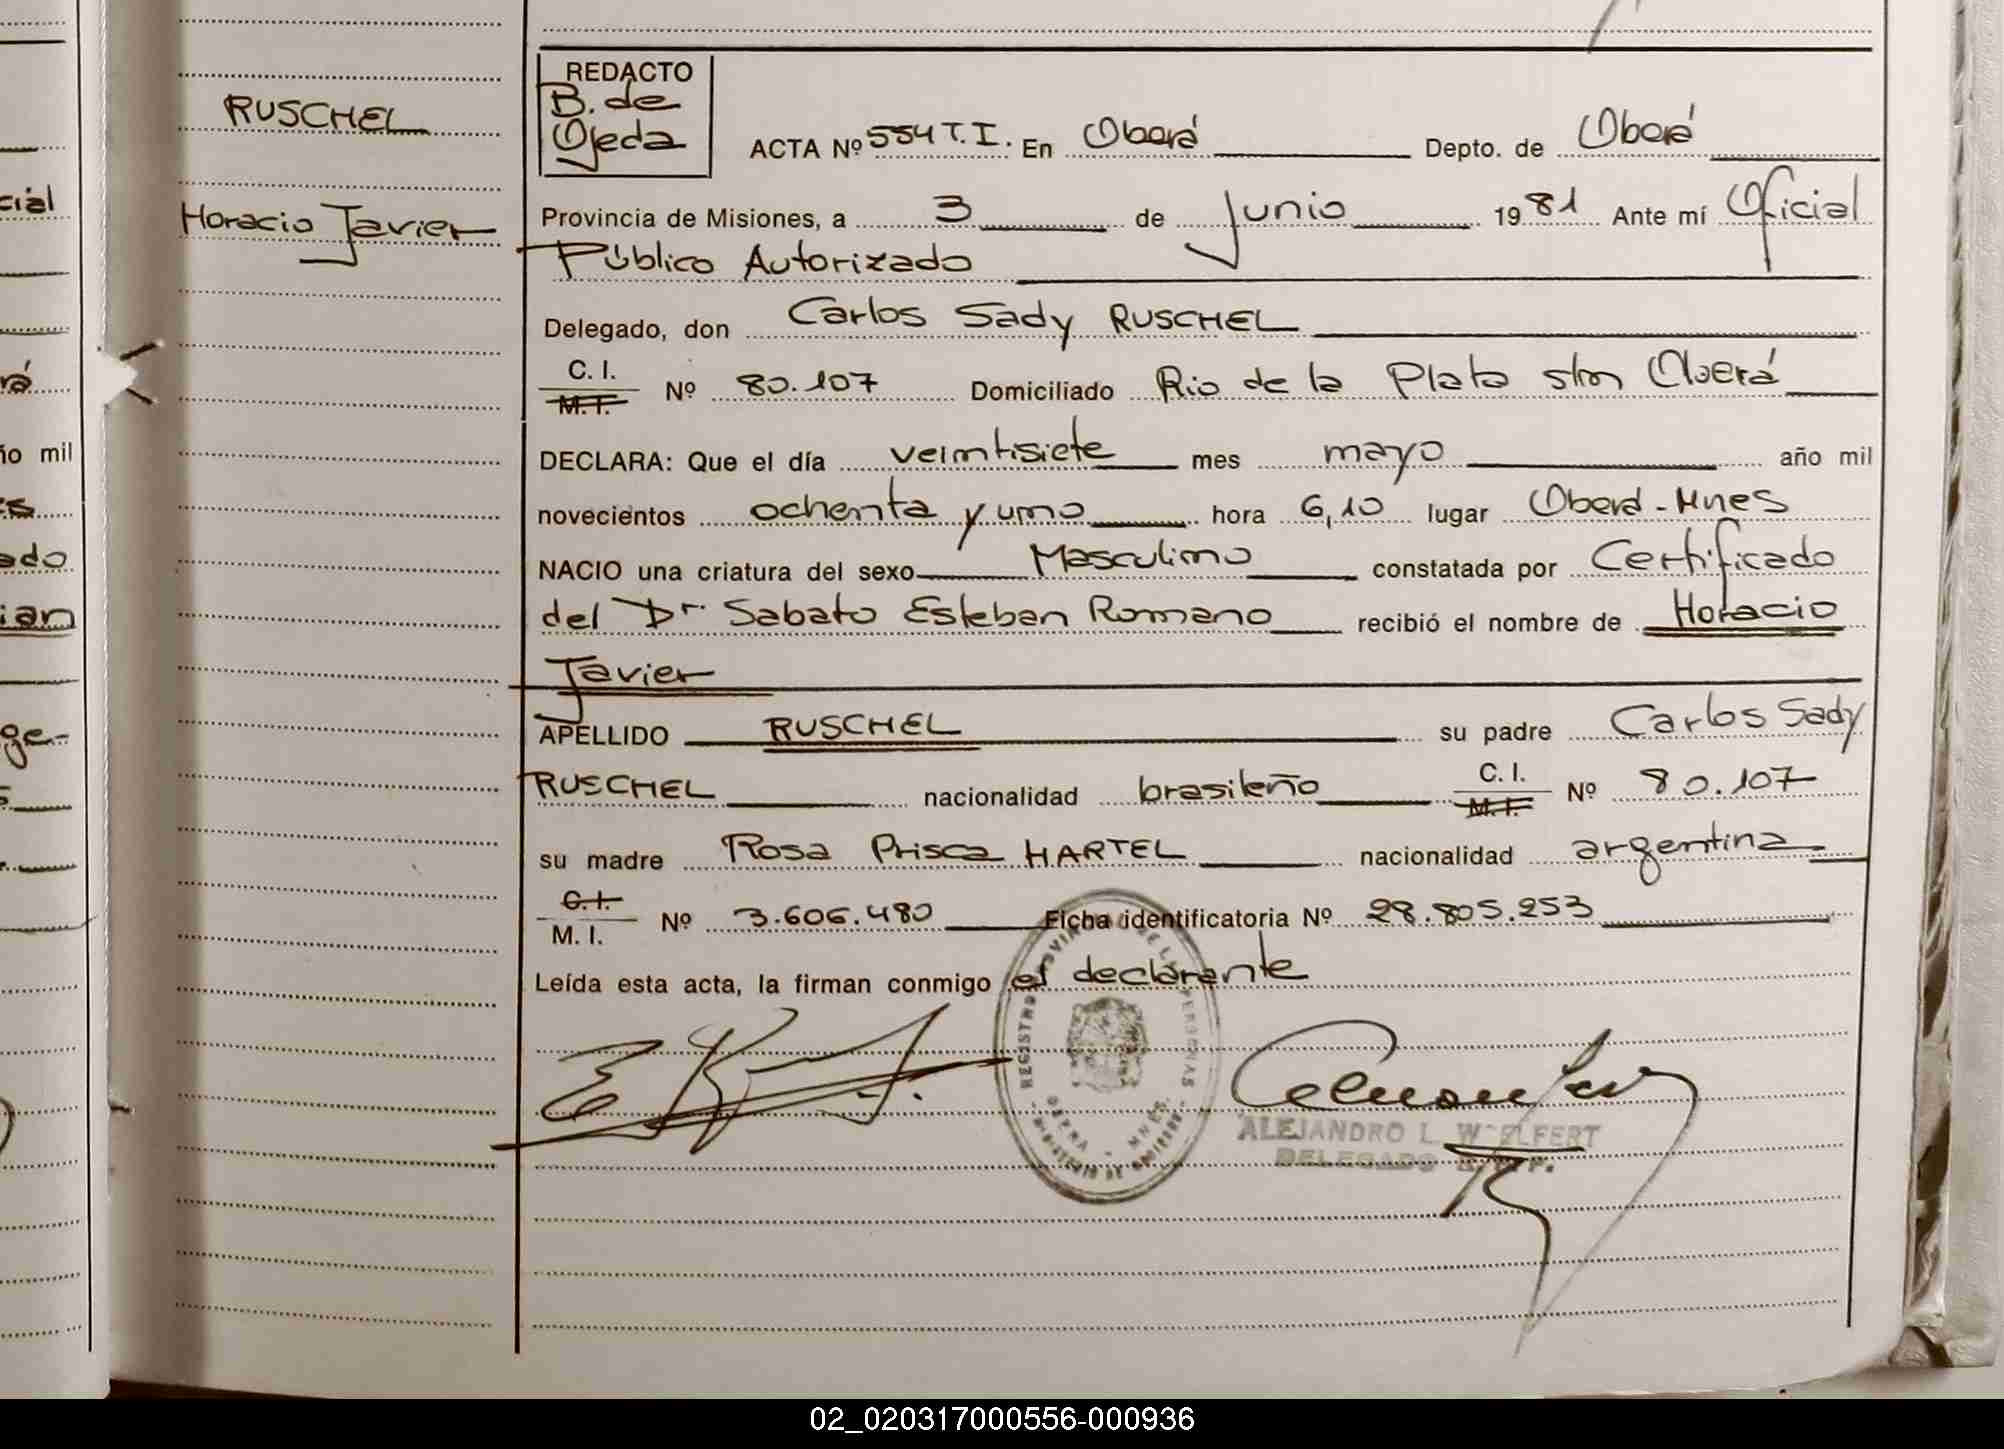 RUSCHEL
Horacio Javier
REDACTO
B. de
Ojeda
ACTA Nº 554 T.I. En Oberá Depto. de Oberá
Provincia de Misiones, a 3 de Junio 1981 Ante mí Oficial
Público Autorizado
Delegado, don Carlos Sady RUSCHEL
C. I.
M. I. Nº 80.107 Domiciliado Rio de la Plata s/n Oberá
DECLARA: Que el día veintisiete mes mayo año mil
novecientos ochenta y uno hora 6,10 lugar Oberá - Mnes
NACIO una criatura del sexo Masculino constatada por Certificado
del Dr. Sabato Esteban Romano recibió el nombre de Horacio
Javier
APELLIDO RUSCHEL su padre Carlos Sady
RUSCHEL nacionalidad brasileño C. I.
M. I. Nº 80.107
su madre Rosa Prisca HARTEL nacionalidad argentina
C. I.
M. I. Nº 3.606.480 Ficha identificatoria Nº 28.805.253
Leída esta acta, la firman conmigo el declarante
ALEJANDRO L. WELFERT
DELEGADO
02_020317000556-000936
cial
rá
ño mil
es
ado
ian
ge-